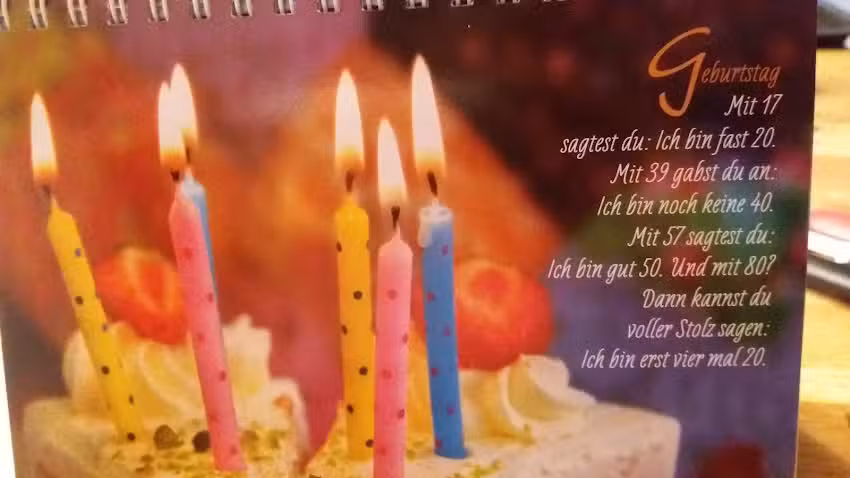 Geburtstag
Mit 17
sagtest du: Ich bin fast 20.
Mit 39 gabst du an:
Ich bin noch keine 40.
Mit 57 sagtest du:
Ich bin gut 50. Und mit 80?
Dann kannst du
voller Stolz sagen:
Ich bin erst vier mal 20.